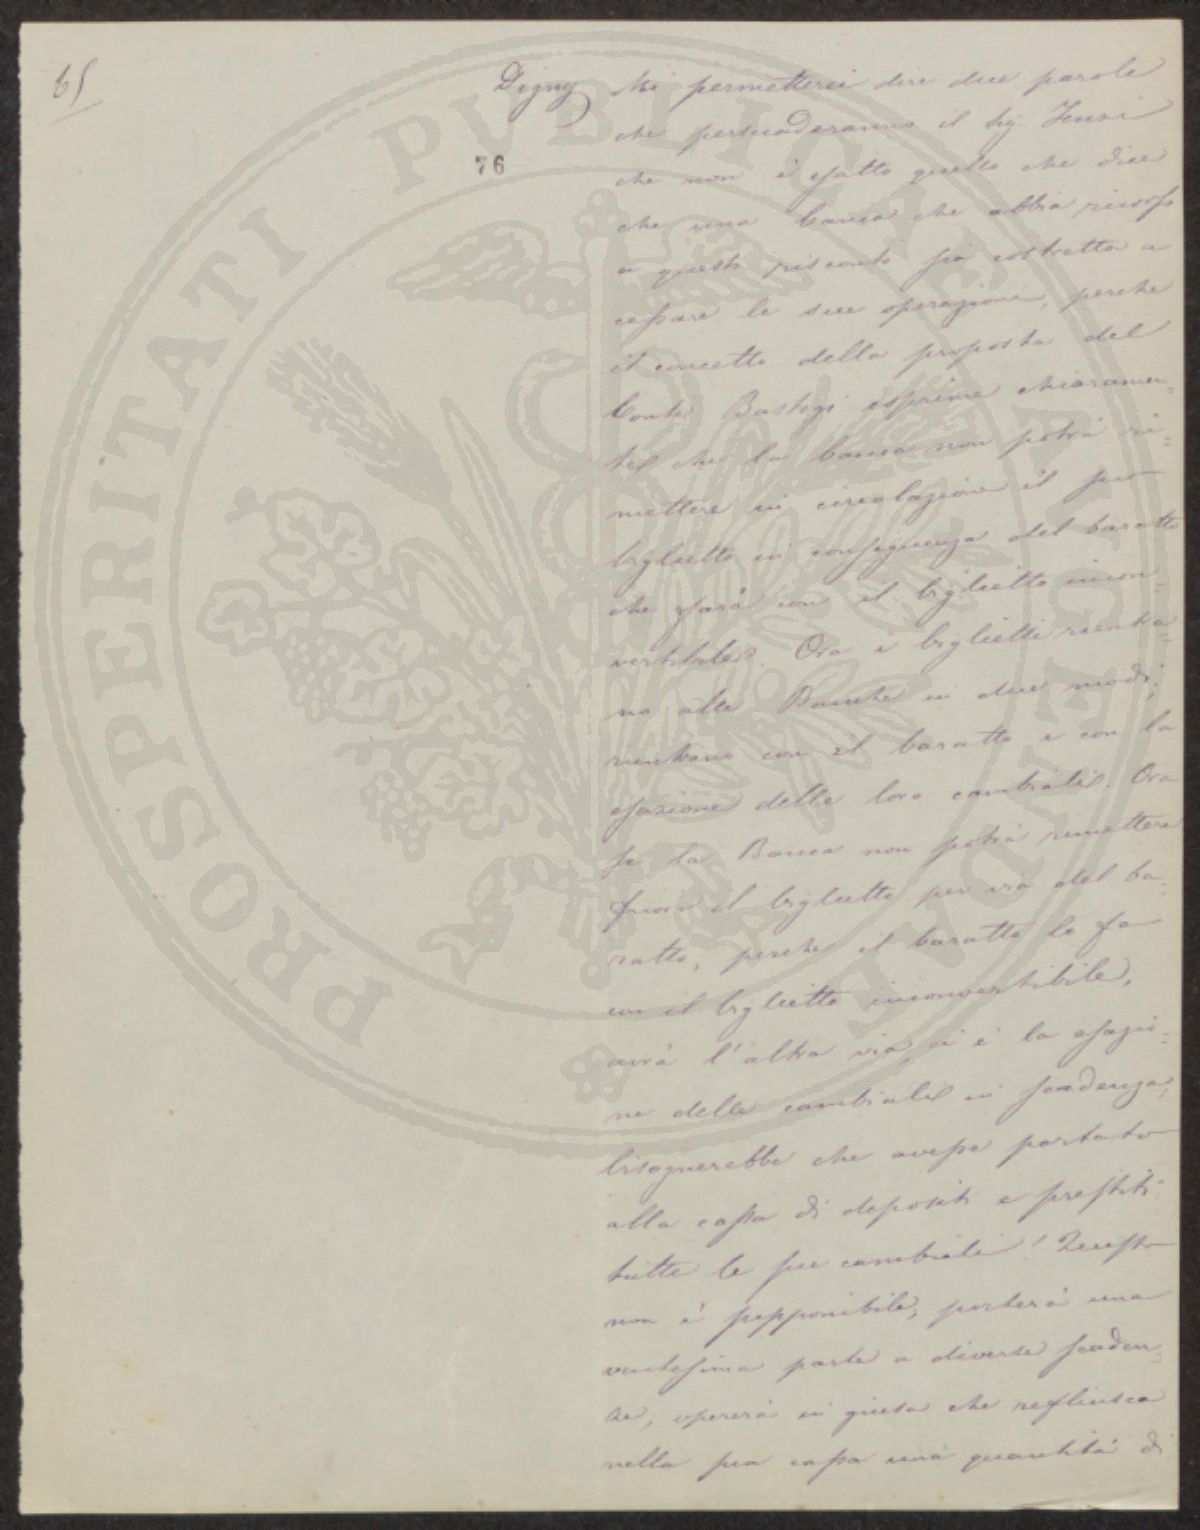 65
Digny Mi permetterei dire due parole
76
che persuaderanno il Sig.
che non è esatto quello che dice
che una banca che abbia ricorso
a questi risconti sia costretta a
cessare le sue operazioni, perche
il concetto della proposta del
Conte Bastogi esprime chiaramen-
te che la banca non potrà ri-
mettere in circolazione il suo
biglietto in conseguenza del baratto
che farà con il biglietto incon-
vertibile. Ora i biglietti rientra-
no alle Banche in due modi;
rientrano con il baratto e con la
esazione delle loro cambiali. Ora
se la Banca non potrà rimettere
fuori il biglietto per via del ba-
ratto, perche il baratto lo fa
con il biglietto inconvertibile,
avrà l'altra via, vi è la esazio-
ne delle cambiali in scadenza;
bisognerebbe che avesse portato
alla cassa di depositi e prestiti
tutte le sue cambiali! Questo
non è supponibile; porterà una
ventesima parte a diverse scaden-
ze, opererà in guisa che refluisca
nella sua cassa una quantità di
PROSPERITATI PVBLICAE